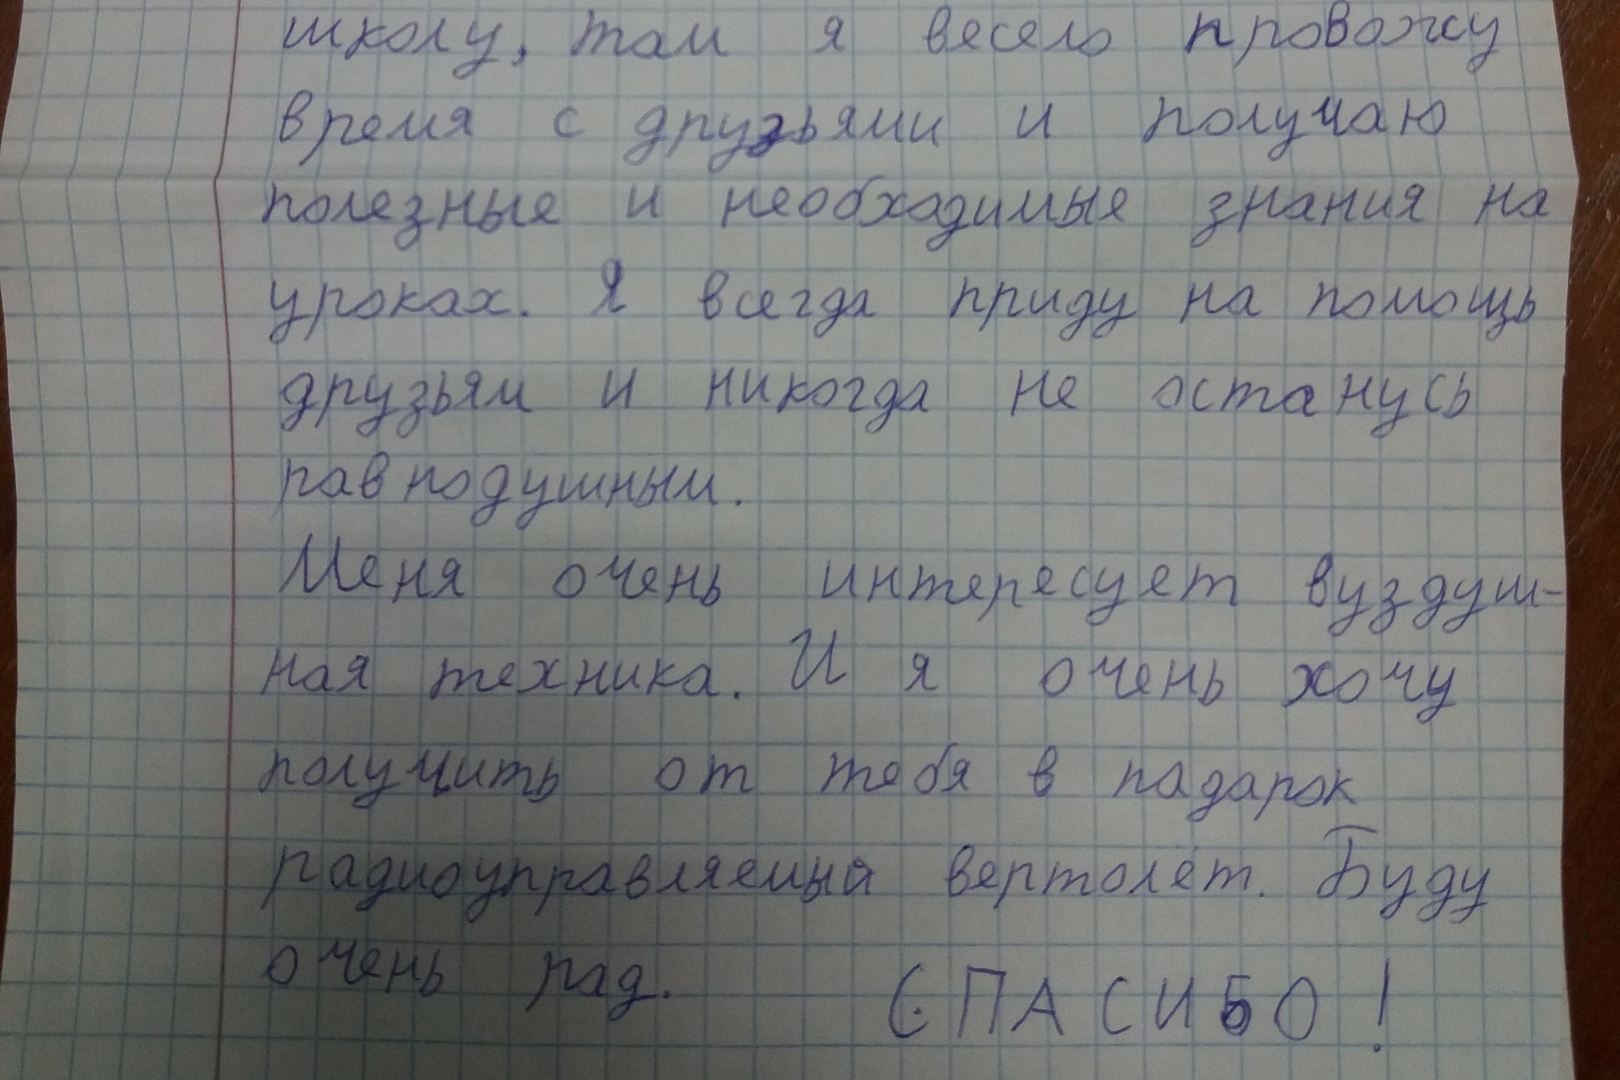 школу, там я весело провожу
время с друзьями и получаю
полезные и необходимые знания на
уроках. Я всегда приду на помощь
друзьям и никогда не останусь
равнодушным.
Меня очень интересует вуздуш-
ная техника. И я очень хочу
получить от тебя в падарок
радиоуправляемый вертолёт. Буду
очень рад. СПАСИБО!